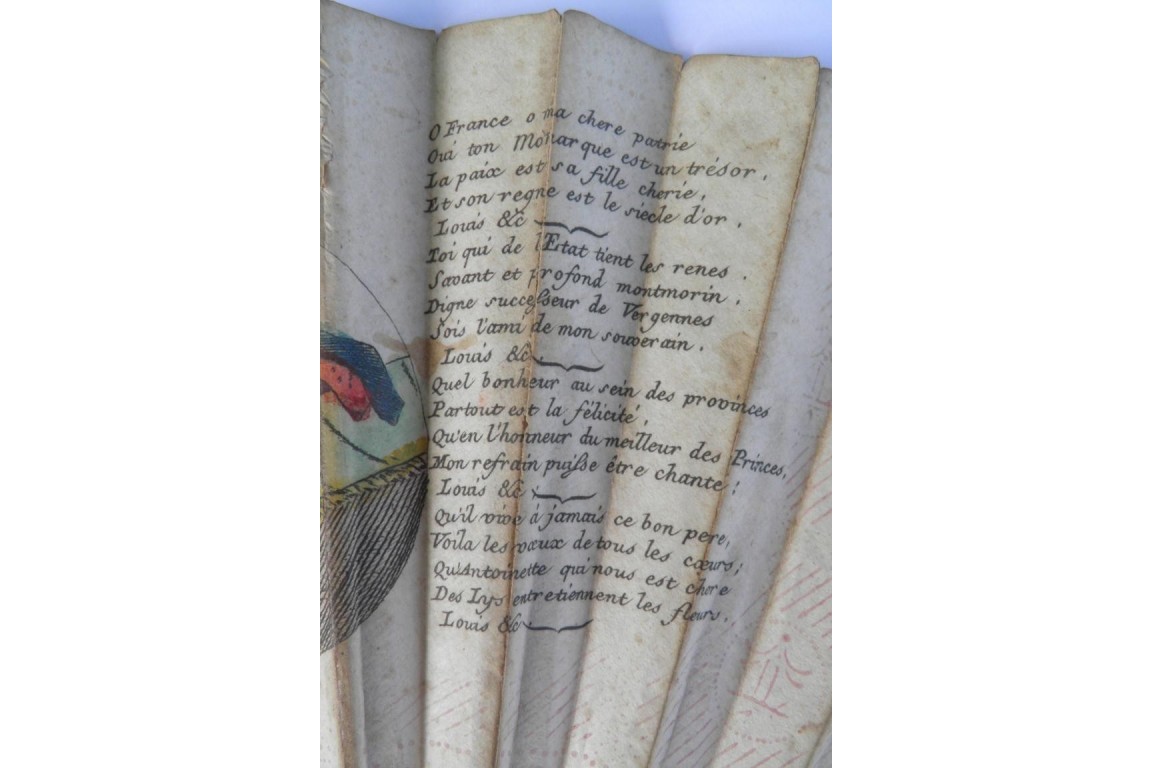 O France o ma chere patrie
Oui ton Monarque est un trésor,
La paix est sa fille cherie,
Et son regne est le siecle d'or,
Louis &c
Toi qui de l'Etat tient les renes.
Savant et profond montmorin,
Digne successeur de Vergennes
Sois l'ami de mon souverain.
Louis &c
Quel bonheur au sein des provinces
Partout est la félicité,
Qu'en l'honneur du meilleur des Princes,
Mon refrain puisse être chante;
Louis &c
Qu'il vive á jamais ce bon pere,
Voila les vœux de tous les cœurs;
Qu'Antoinette qui nous est chere
Des Lys entretiennent les fleurs.
Louis &c